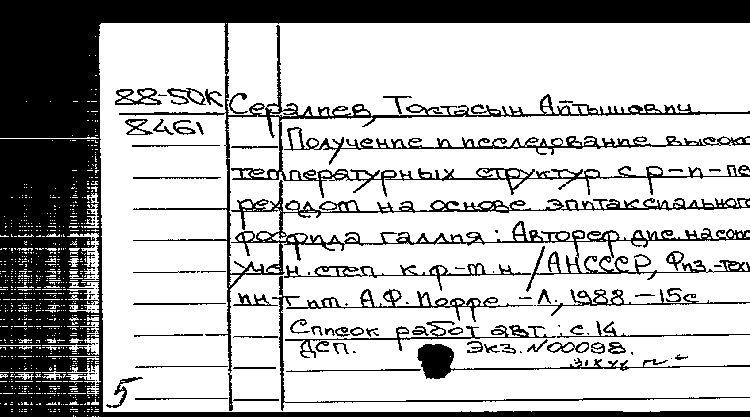 88-50К Сералиев, Токтасын Айтышович
8461 Получение и исследование высоко
температурных структур с p-n-пе
реходом на основе эпитаксиального
фосфида галлия: Автореф. дис. на соиск
учен. степ. к.ф-м.н. / АН СССР, Физ.-техн
ин-т им. А.Ф. Иоффе. - Л., 1988. - 15с
Список работ авт.: с.14.
ДСП. Экз. N00098.
5